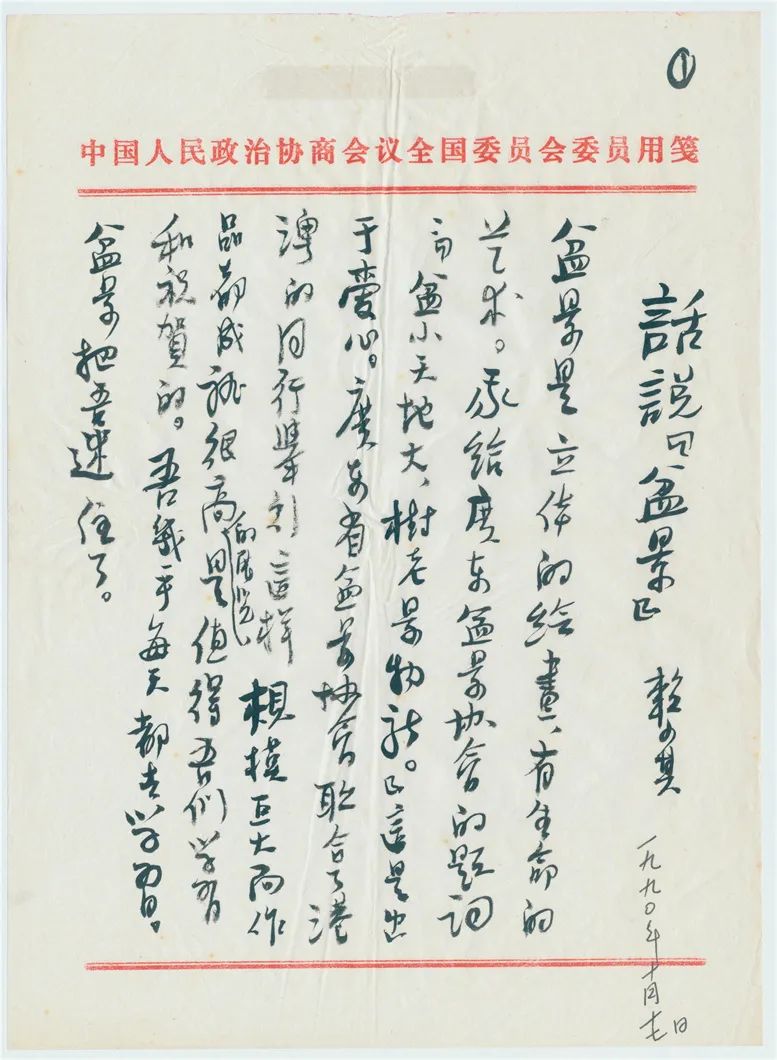 ①
中国人民政治协商会议全国委员会委员用笺
話説「盆景」 賴少其
一九九〇年十月十七日
盆景是立体的绘畫、有生命的
艺术。我给廣东盆景协會的題词
盆小天地大、樹老景物新。」這是出
于愛心。廣东省盆景协會联合了港
澳的同行舉行這样規模巨大而作
品都成就很高的展览、是值得吾们学習
和祝賀的。吾幾乎每天都去学習。
盆景把吾迷住了。